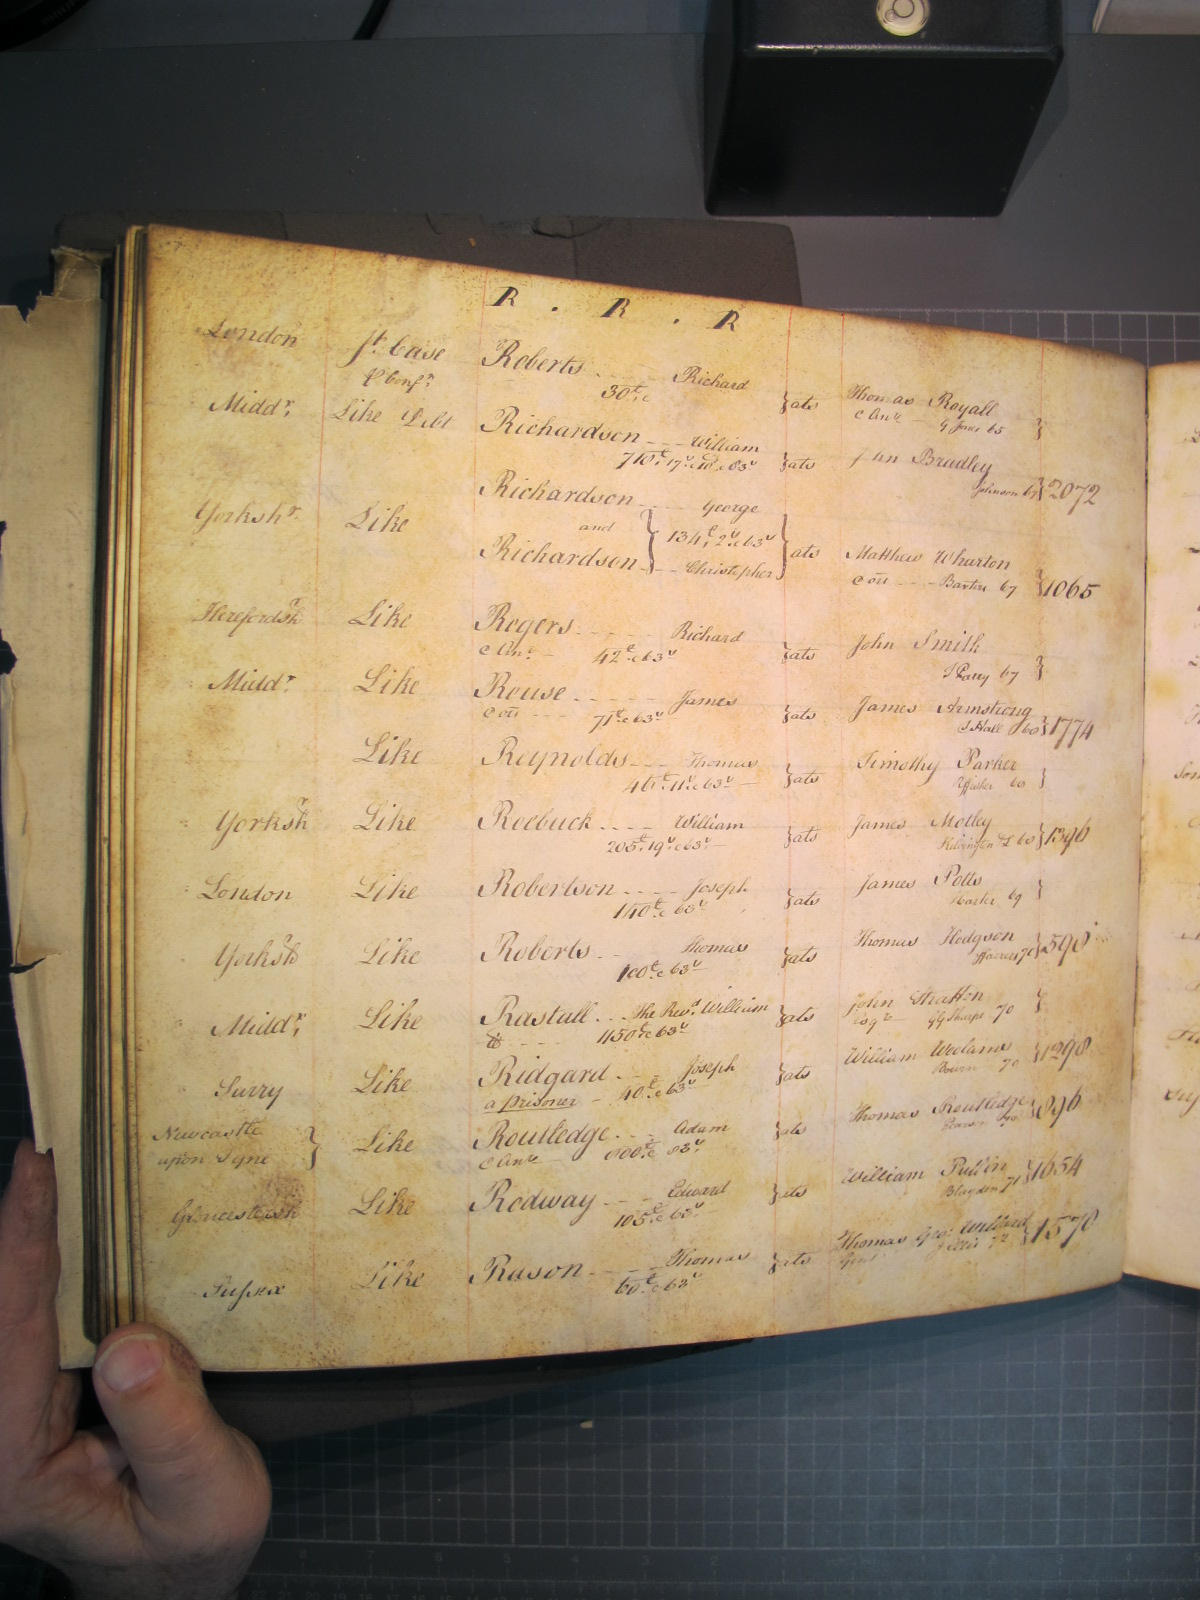 R . R . R
London Jt. Case Roberts Richard
& Conf.n 30£.c }ats Thomas Royall
c An.r G Jones 65 }
Midd.r Like Debt Richardson William
710£.17s. 63s }ats Bradley
Johnson 67 } 2072
Yorksh.r Like Richardson George
and 134£.2s.c63s
Richardson Christopher } ats Matthew Wharton
cou Barton 67 } 1065
Herefordsh Like Rogers Richard
c An.r 42£.c63s }ats John Smith
67 }
Midd.r Like Rouse James
cou 71£.c63s }ats James Armstrong
Hall 60 } 1774
Like Reynolds Thomas
46£.11s.c63s }ats Timothy Parker
60 }
Yorksh Like Roebuck William
205£.19s.c63s }ats James Motley
60 } 1396
London Like Robertson Joseph
140£.c63s }ats James Potts
69 }
Yorksh Like Roberts Thomas
100£.c63s }ats Thomas Hodgson
70 } 590
Midd.r Like Rastall The Rev.d William
1150£.c63s }ats John Stratton
Esq.r Sharpe 70 }
Surry Like Ridgard Joseph
a prisoner 40£.c63s }ats William Woolams
Bourn 70 } 1298
Newcastle
upon Tyne } Like Routledge Adam
c An.r }ats Thomas Routledge
Gloucestersh Like Rodway Edward
105£.c63s }ats William Pullin
Blagden 71 } 1654
Sussex Like Rason Thomas
60£.c63s }ats Thomas Geo. Willard
72 } 1570